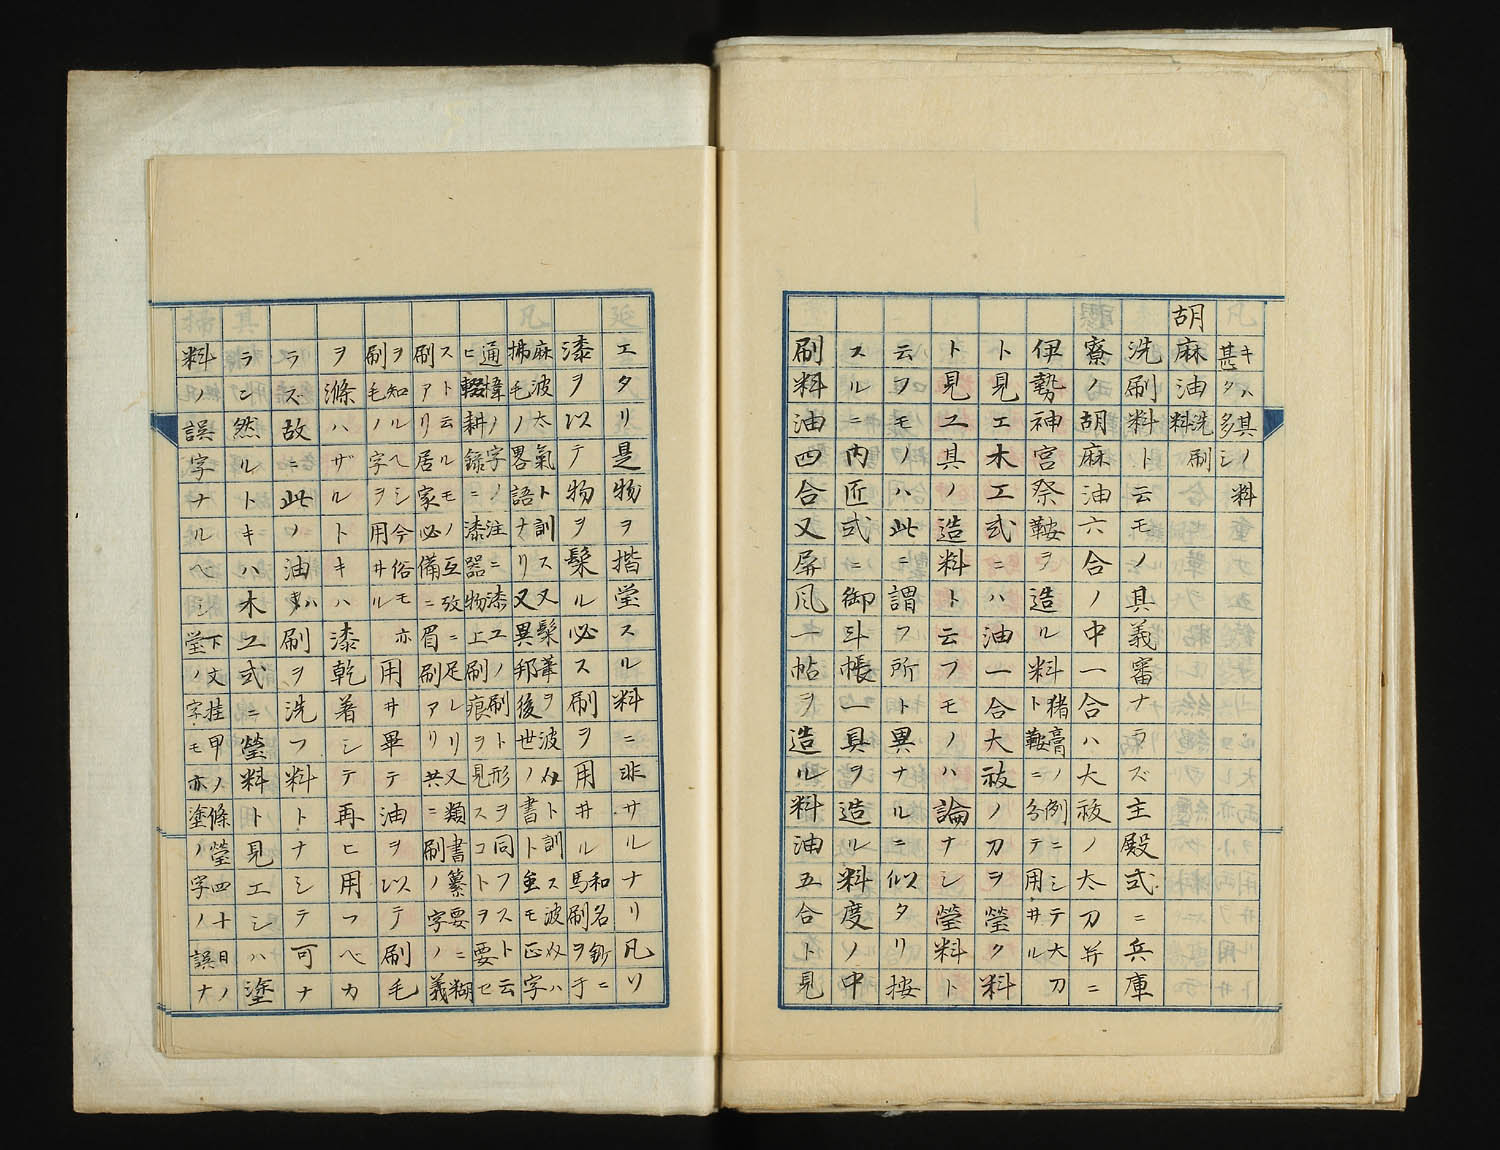 キハ其ノ料
甚タ多シ
胡麻油洗刷
料
洗刷料ト云モノ具義審ナラズ主殿式ニ兵庫
寮ノ胡麻油六合ノ中一合ハ大祓ノ大刀并ニ
伊勢神宮祭鞍ヲ造ル料猪膏ノ例ニシテ大刀
ト鞍ニ分テ用井ル
ト見エ木工式ニハ油一合大祓ノ刀ヲ瑩ク料
ト見ユ其ノ造料ト云フモノハ論ナシ瑩料ト
云ヲモノハ此ニ謂フ所ト異ナルニ似タリ按
スルニ内匠式ニ御斗帳一具ヲ造ル料度ノ中
刷料油四合又屏風一帖ヲ造ル料油五合ト見
エタリ是物ヲ揩瑩スル料ニ非サルナリ凡リ
漆ヲ以テ物ヲ髹ル必ス刷ヲ用井ル和名鈔ニ
馬刷ヲ于
麻波太氣ト訓ス又髹筆ヲ波ケト訓ス波ケハ
拂毛ノ畧語ナリ又異邦後世ノ書ト重モ正字
通椲ノ字ノ注ニ漆工ノ刷ト形ヲ同フスト云
ヒ輟耕録ニ漆器物上刷痕ヲ見スコトヲ要セ
スト云ルモノ互攷ニ足レリ又類書纂要ニ糊
刷アリ居家必備ニ眉刷アリ共ニ刷ノ字ノ義
ヲ知ルヘシ今俗モ亦
刷毛ノ字ヲ用井ル
用井畢テ油ヲ以テ刷毛
ヲ滌ハザルトキハ漆乾着シテ再ヒ用フベカ
ラズ故ニ此ノ油ハ刷ヲ洗フ料トナシテ可ナ
ランニ然ルトキハ木工式ニ瑩料ト見エシハ塗
料ノ誤字ナルヘシ下文挂甲ノ條瑩四十日ノ
瑩ノ字モ亦塗ノ字ノ誤ナ